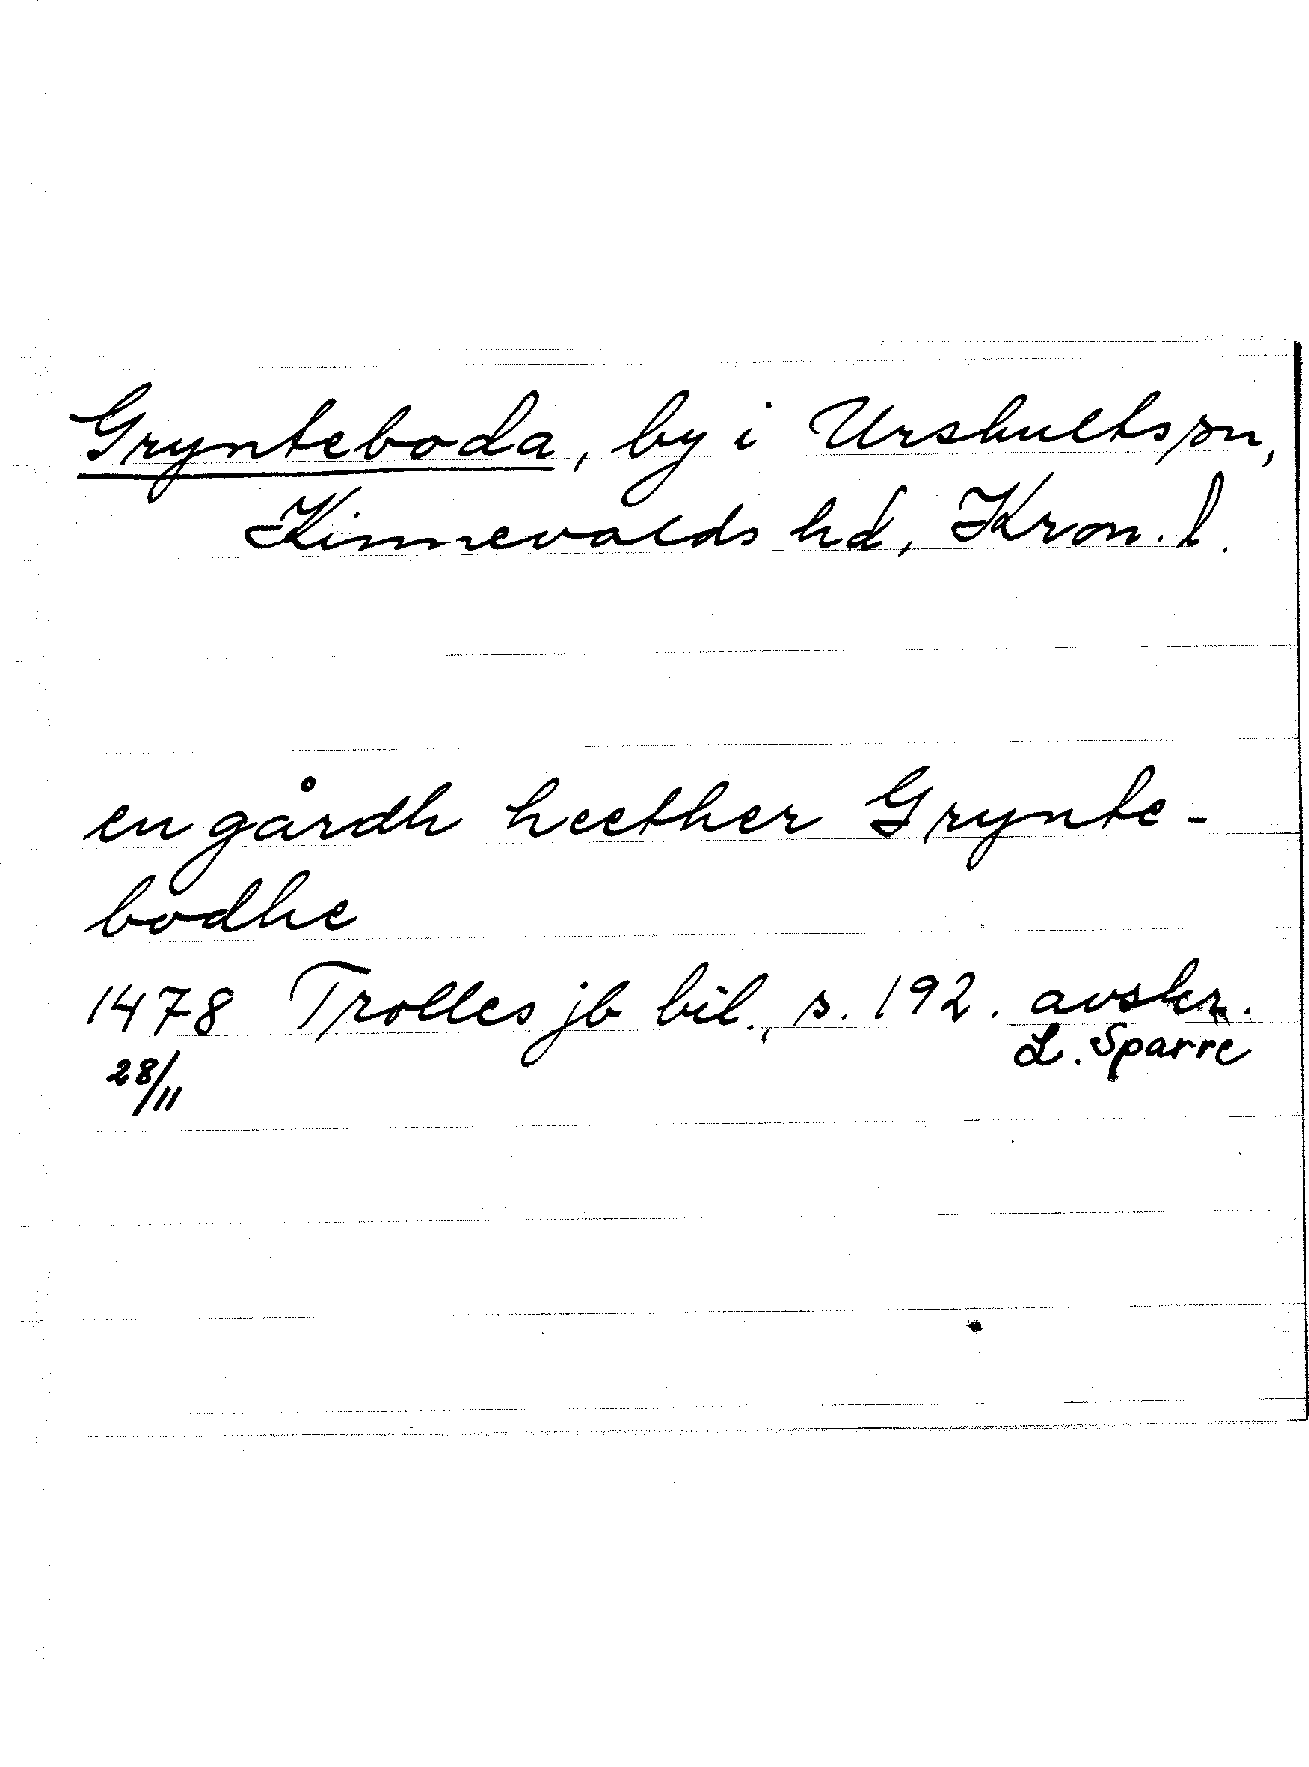 Grynteboda, by i Urshults sn,
Kinnevalds hd, Kron. l.
en gårdh heether Grynte-
bodhe
1478 Trolles jb bil., s. 192. avskr.
28/11 L. Sparre